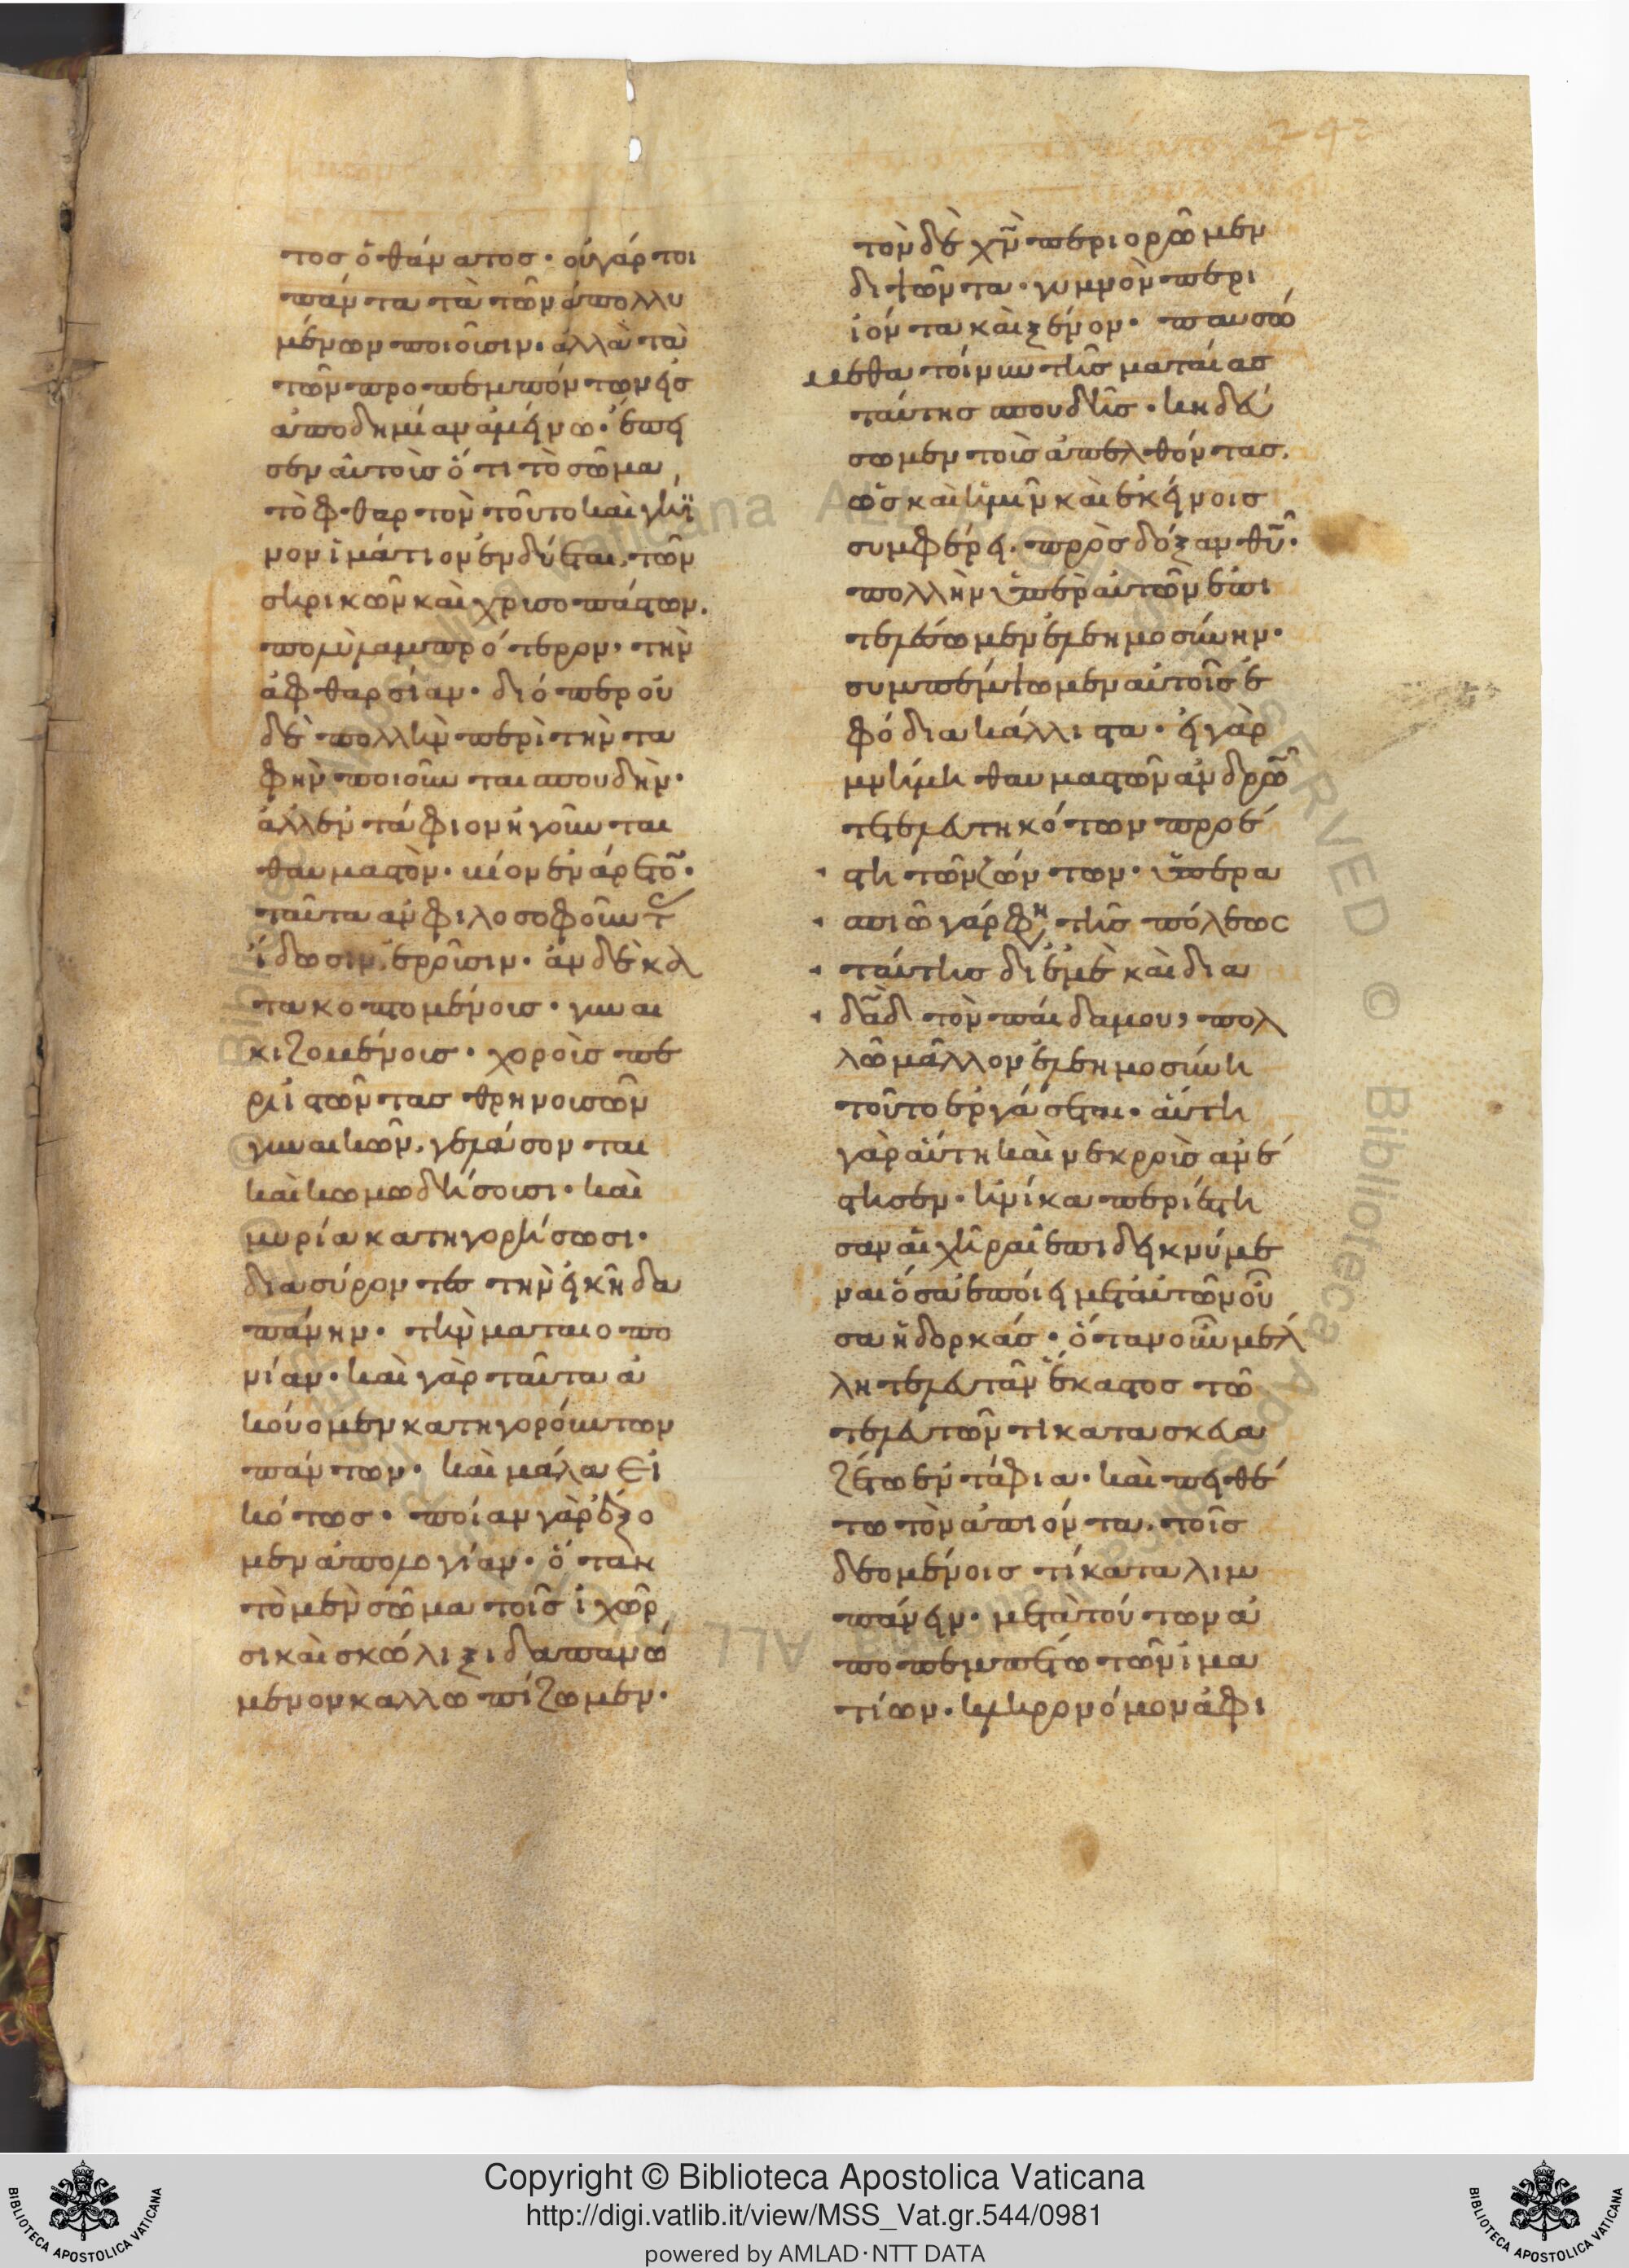 τοσ ὁ θάνατοσ· οὐ γάρ τοι
πάντα τὰ τῶν ἀπολλυ
μένων ποιοῦσιν· ἀλλὰ τὰ
τῶν προπεμπόντων εἰσ
ἀποδημίαν ἀμείνω· ἔπει
σεν αὐτοὺσ ὅτι τὸ σῶμα,
τὸ φθαρτὸν τοῦτο καὶ γήϊ
νον ἱμάτιον ἐνδύεται, τῶν
σηρικῶν καὶ χρυσοπάστων.
πολὺ λαμπρότερον, τὴν
ἀφθαρσίαν· διόπερ οὐ
δὲ πολλὴν περὶ τὴν τα
φὴν ποιοῦνται σπουδὴν·
ἀλλ ἐντάφιον ἡγοῦνται
θαυμαστὸν· βίον ἐνάρετο̃·
ταῦτα ἂν φιλοσοφοῦντ
ἴδωσιν, ἐροῦσιν· ἂν δὲ κα
τακοπτομένοισ· γυναι
κιζομένοισ· χοροὺσ πε
ριϊστῶντασ θρηνουσῶν
γυναικῶν, γελάσονται
καὶ κωμωδήσουσι· καὶ
μυρία κατηγορήσωσι·
διασύροντεσ τὴν εἰκῆ δα
πάνην· τὴν ματαιοπο
νίαν· καὶ γὰρ ταῦτα ἀ
κούομεν κατηγορούντων
πάντων· καὶ μάλα εἰ
κότωσ· ποίαν γὰρ ἕξο
μεν ἀπολογίαν· ὅταν
τὸ μὲν σῶμα τοῖσ ἰχῶρ
σι καὶ σκώληξι δαπανώ
μενον καλλωπίζωμεν·
τὸν δὲ χν̃ περιορῶμεν
διψῶντα· γυμνὸν περι
ιόντα καὶ ξένον· παυσώ
μεθα τοίνυν τῆσ ματαίασ
ταύτησ σπουδῆσ· κηδεύ
σωμεν τοὺσ ἀπελθόντασ,
ὡσ καὶ ἡμῖν καὶ ἐκείνοισ
συμφέρει. πρὸσ δόξαν θυ̃·
πολλὴν ὑπὲρ αὐτῶν ἐπι
τελέσωμεν ἐλεημοσύνην·
συμπέμψωμεν αὐτοῖσ ἐ
φόδια κάλλιστα· εἰ γὰρ
μνήμη θαυμαστῶν ἀνδρῶ̃
τετελευτηκότων προέ
στη τῶν ζώντων· ὑπερα
σπιῶ γάρ φη, τῆσ πόλεως
ταύτησ δι ἐμὲ καὶ δια
δα̃δ τὸν παῖδα μου, πολ
λῶ μᾶλλον ἐλεημοσύνη
τοῦτο ἐργάσεται· αὕτη
γὰρ αὕτη καὶ νεκροὺσ ἀνέ
στησεν· ἡνίκα περιέστη
σαν αἱ χῆραι ἐπιδεικνύμε
ναι ὅσα ἐποίει μετ αὐτῶν οὖ
σα ἡ δορκάσ· ὅταν οὖν μέλ
λη τελευτᾶν ἕκαστοσ τῶ
τελευτῶντι κατασκευα
ζέτω ἐντάφια· καὶ πειθέ
τω τὸν ἀπιόντα, τοῖσ
δεομένοισ τι καταλιμ
πάνειν· μετὰ τούτων ἀ
ποπεμπέτω τῶν ἱμα
τίων· κληρονόμον ἀφι
Copyright © Biblioteca Apostolica Vaticana
http://digi.vatlib.it/view/MSS_Vat.gr.544/0981
powered by AMLAD·NTT DATA
BIBLIOTECA APOSTOLICA VATICANA
BIBLIOTECA APOSTOLICA VATICANA